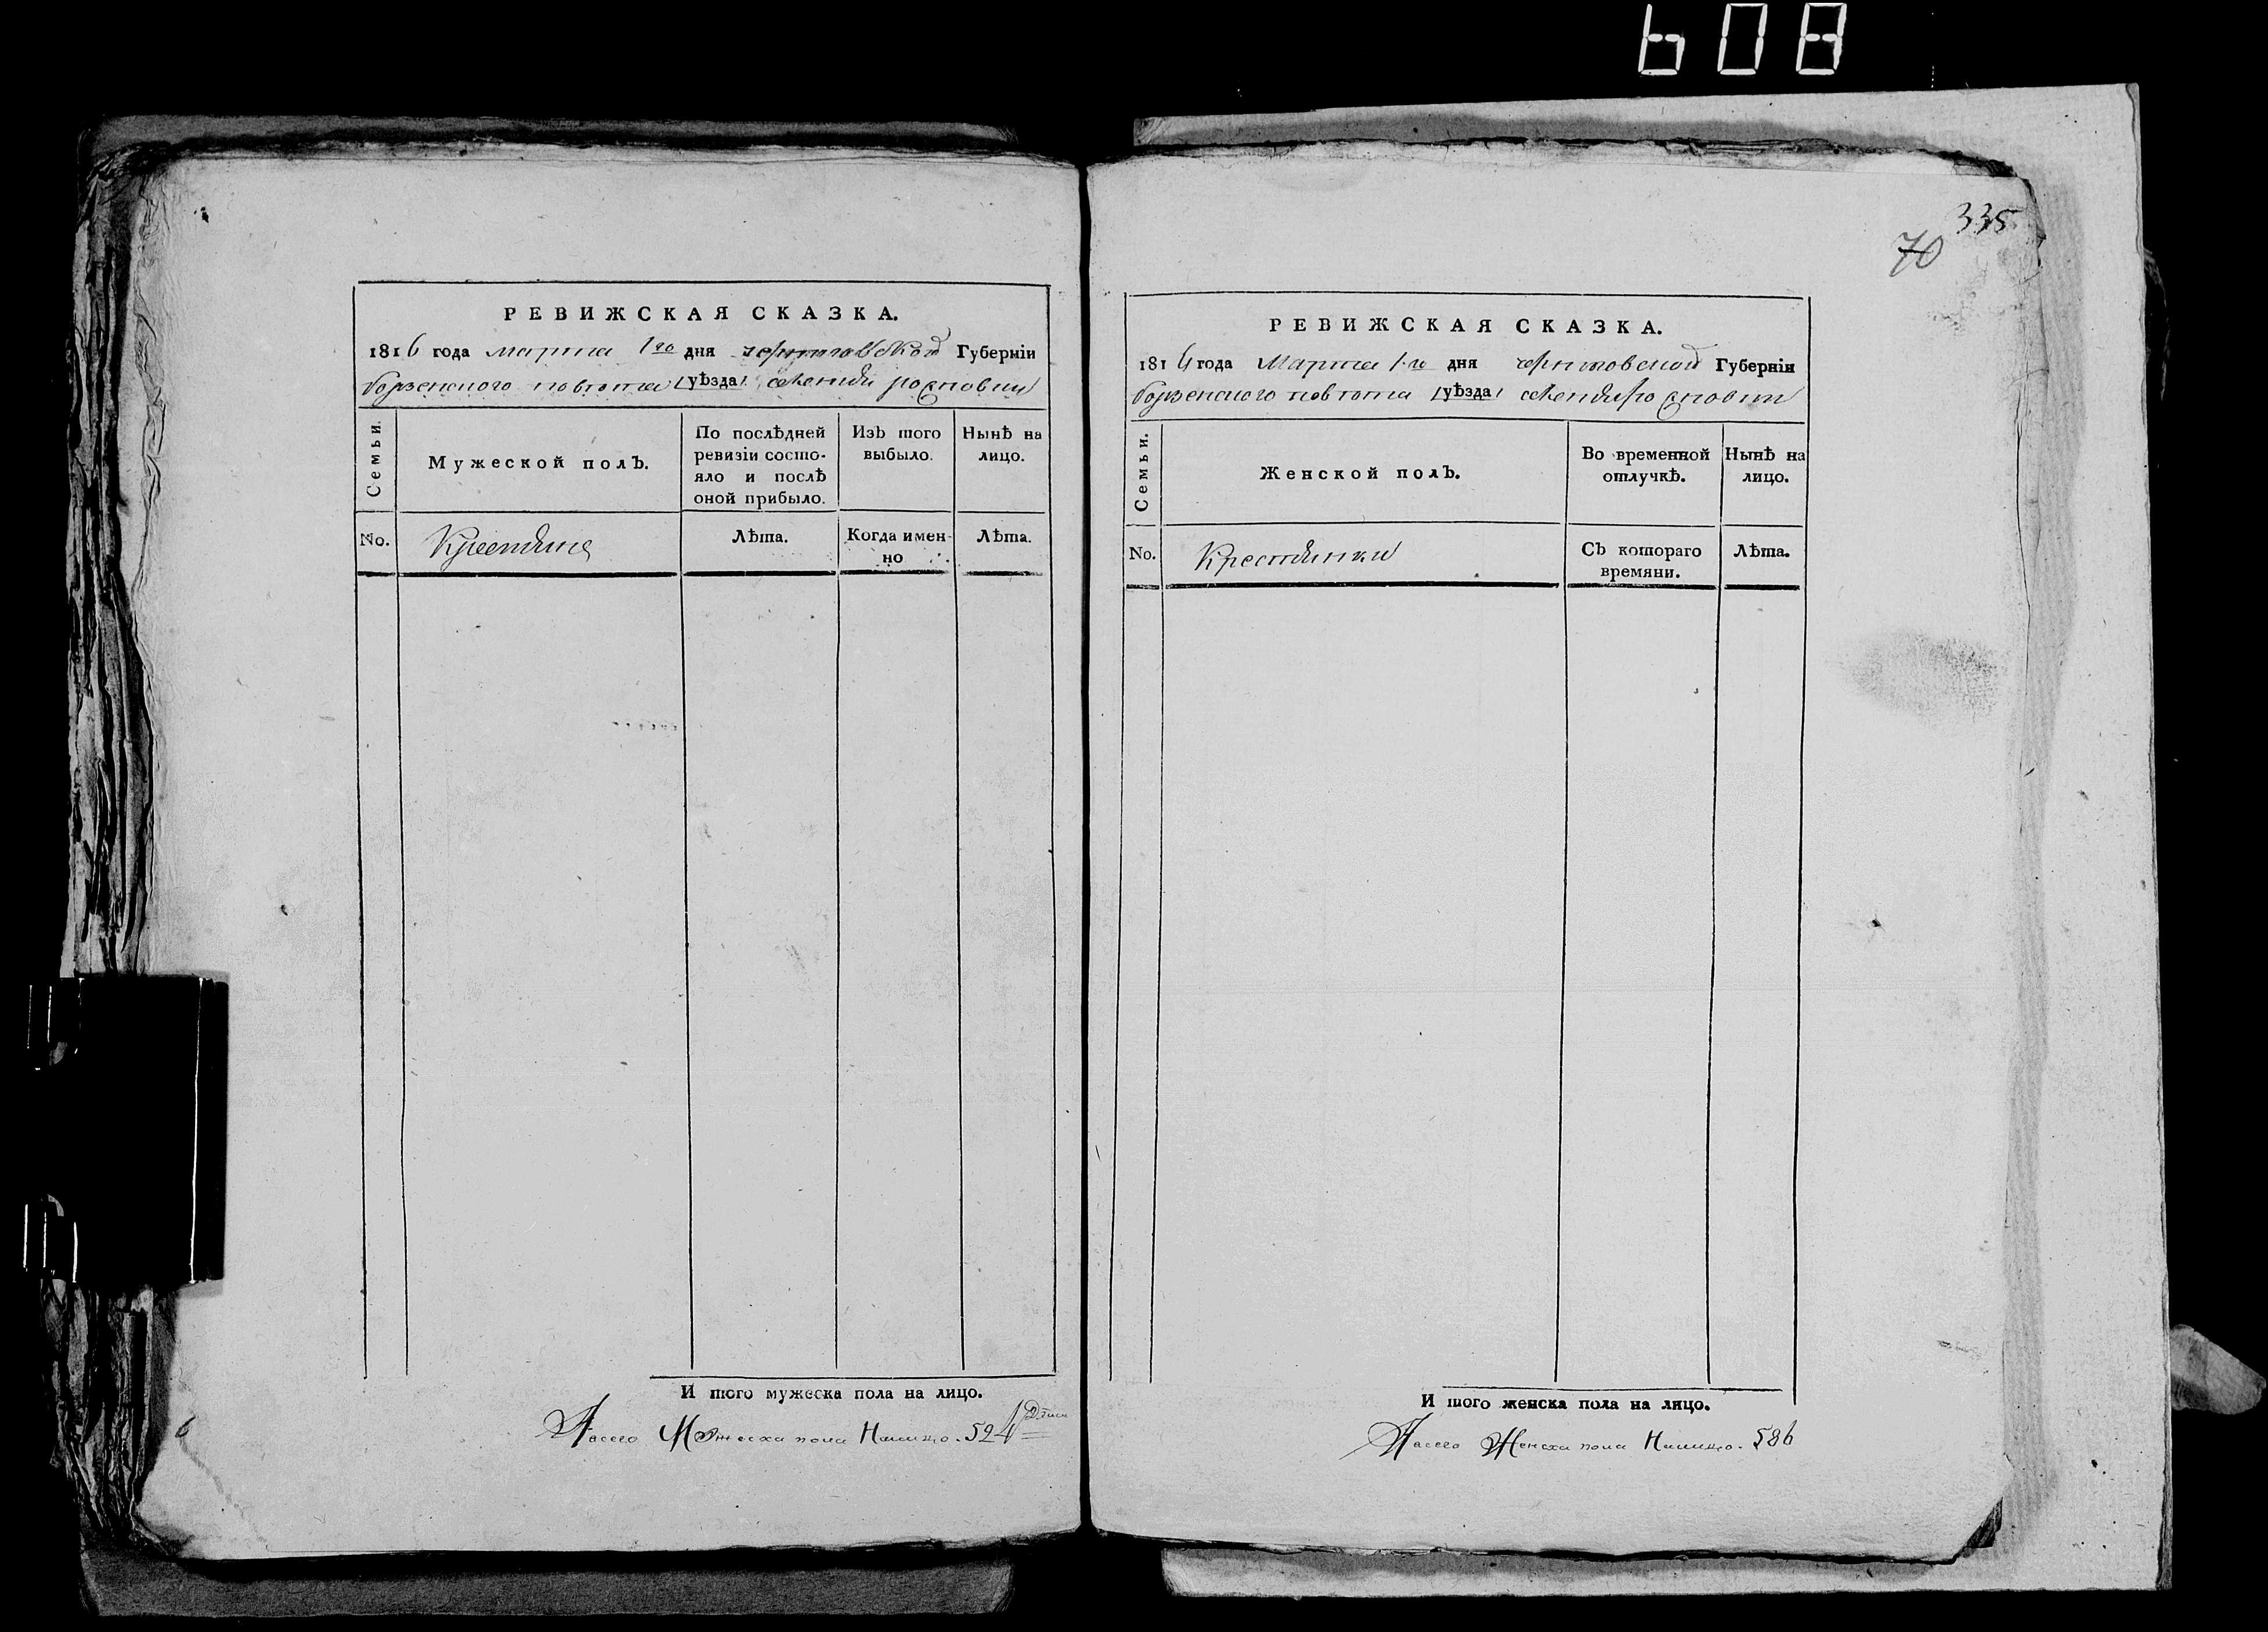 608
335
70
РЕВИЖСКАЯ СКАЗКА.
1816 года марта 1го дня черниговской Губерніи
борзенского повтота /уѣзда/
Семьи.
Мужеской полЪ.
По послѣдней ревизіи состояло и послѣ оной прибыло.
ИзЪ того выбыло.
НынѢ на лицо.
No.
Крестяне
ЛѢта.
Когда именно
ЛѢта.
И того мужеска пола на лицо.
Мужеска пола Налицо. 524
РЕВИЖСКАЯ СКАЗКА.
1816 года Марта 1го дня черниговской Губерніи
борзенского повтота /уѢзда/
Семьи.
Женской полЪ.
Во временной отлучкѢ.
НынѢ на лицо.
No.
Крестянки
СЪ котораго времяни.
ЛѢта.
И того женска пола на лицо.
Женска пола Налицо. 586